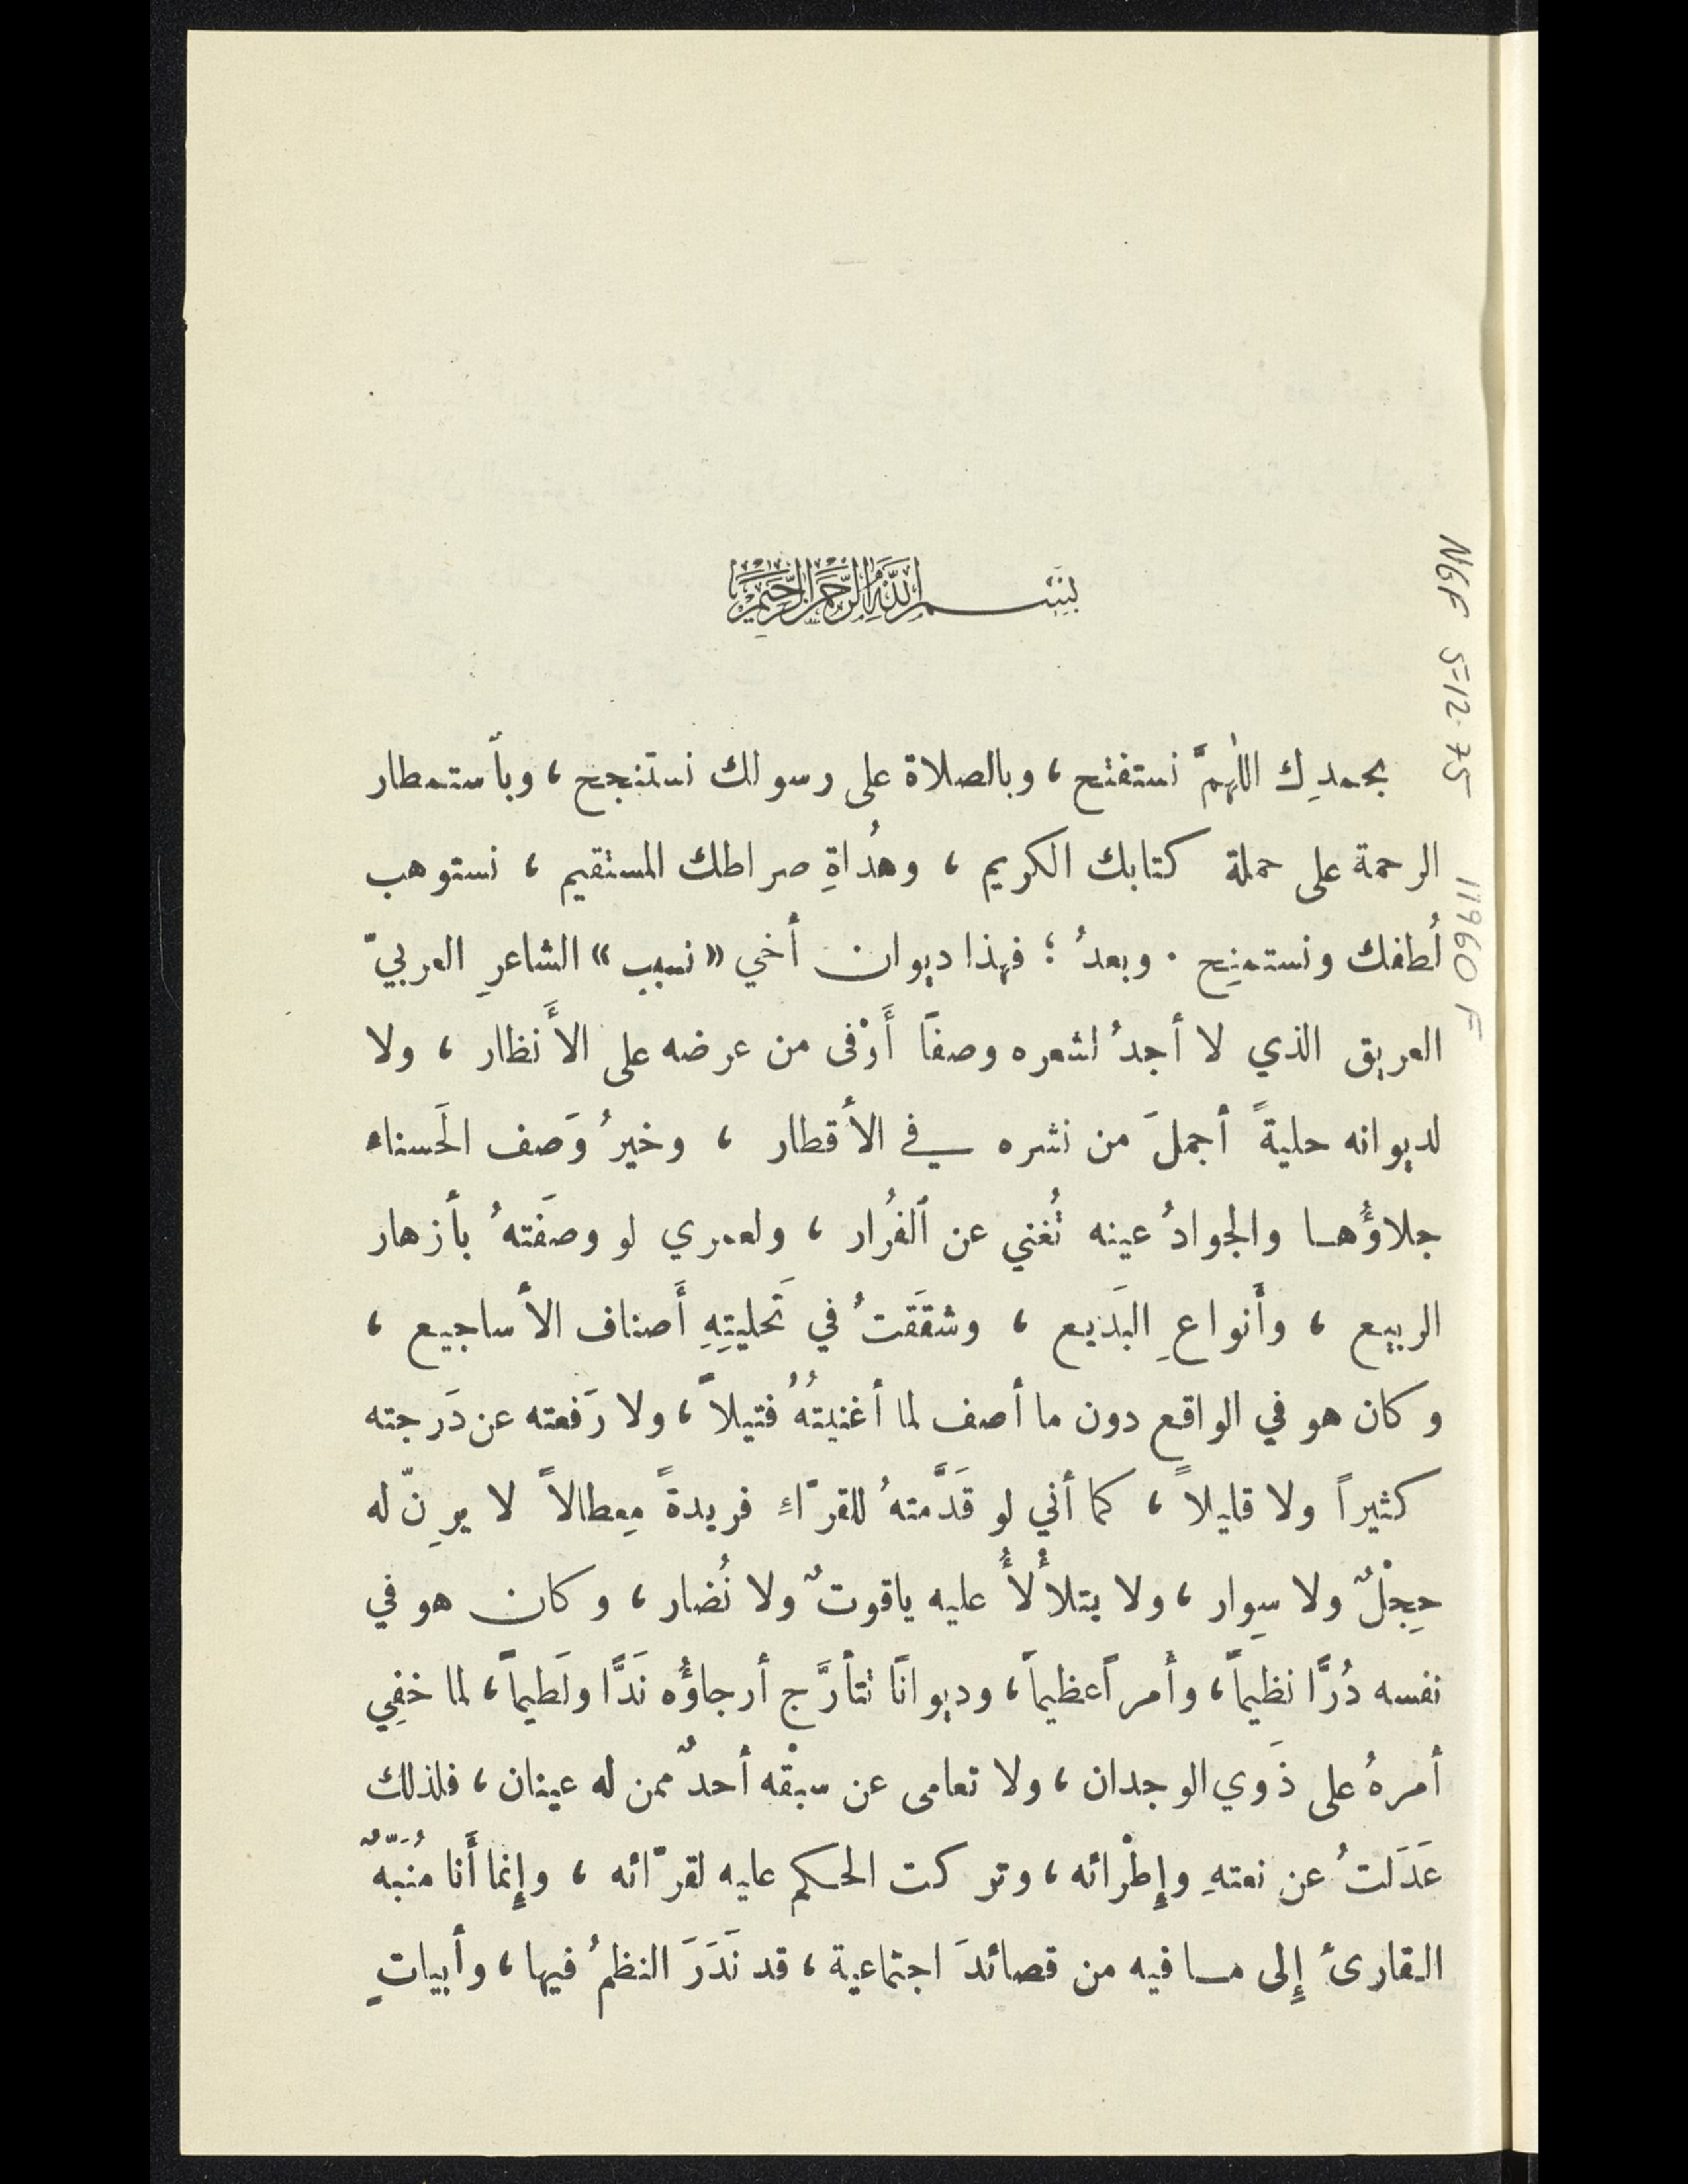 بسم الله الرحمن الرحيم
بحمدِك اللهمَّ نستفتح، وبالصلاة على رسولك نستنجح، وبأستمطار
الرحمة على حملة كتابك الكريم، وهُداةِ صراطك المستقيم، نستوهب
لُطفك ونستمنِح. وبعدُ؛ فهذا ديوان أخي «نسيب» الشاعرِ العربيّ
العريق الذي لا أجدُ لشعره وصفًا أَوْفى من عرضه على الأَنظار، ولا
لديوانه حليةً أجملَ من نشره في الأقطار، وخيرُ وَصف الحَسناء
جلاؤُها والجوادُ عينه تُغني عن ٱلفُرار، ولعمري لو وصَفتهُ بأزهار
الربيع، وأَنواعِ البَديع، وشقَقتُ في تَحليتِهِ أَصناف الأساجيع،
وكان هو في الواقع دون ما أصف لما أغنيتُهُ فتيلاً، ولا رَفعته عن دَرجته
كثيراً ولا قليلاً، كما أني لو قَدَّمتهُ للقرّاءِ فريدةً مِعطالاً لا يرِنّ له
حِجْلٌ ولا سِوار، ولا يتلأْلأُ عليه ياقوتٌ ولا نُضار، وكان هو في
نفسه دُرًّا نظيماً، وأَمراً عظيماً، وديوانًا تتأرَّج أرجاؤُه نَدًّا ولَطيماً، لما خفِي
أمرهُ على ذَوي الوجدان، ولا تعامى عن سبقْه أحدٌ ممن له عينان، فلذلك
عَدَلتُ عن نعتهِ وإِطْرائه، وتركت الحكم عليه لقرّائه، وإِنما أَنا مُنَبّهٌ
القارىءَ إِلى ما فيه من قصائدَ اجتماعية، قد نَدَرَ النظمُ فيها، وأبياتٍ
NGF 5-12-75
11960 F